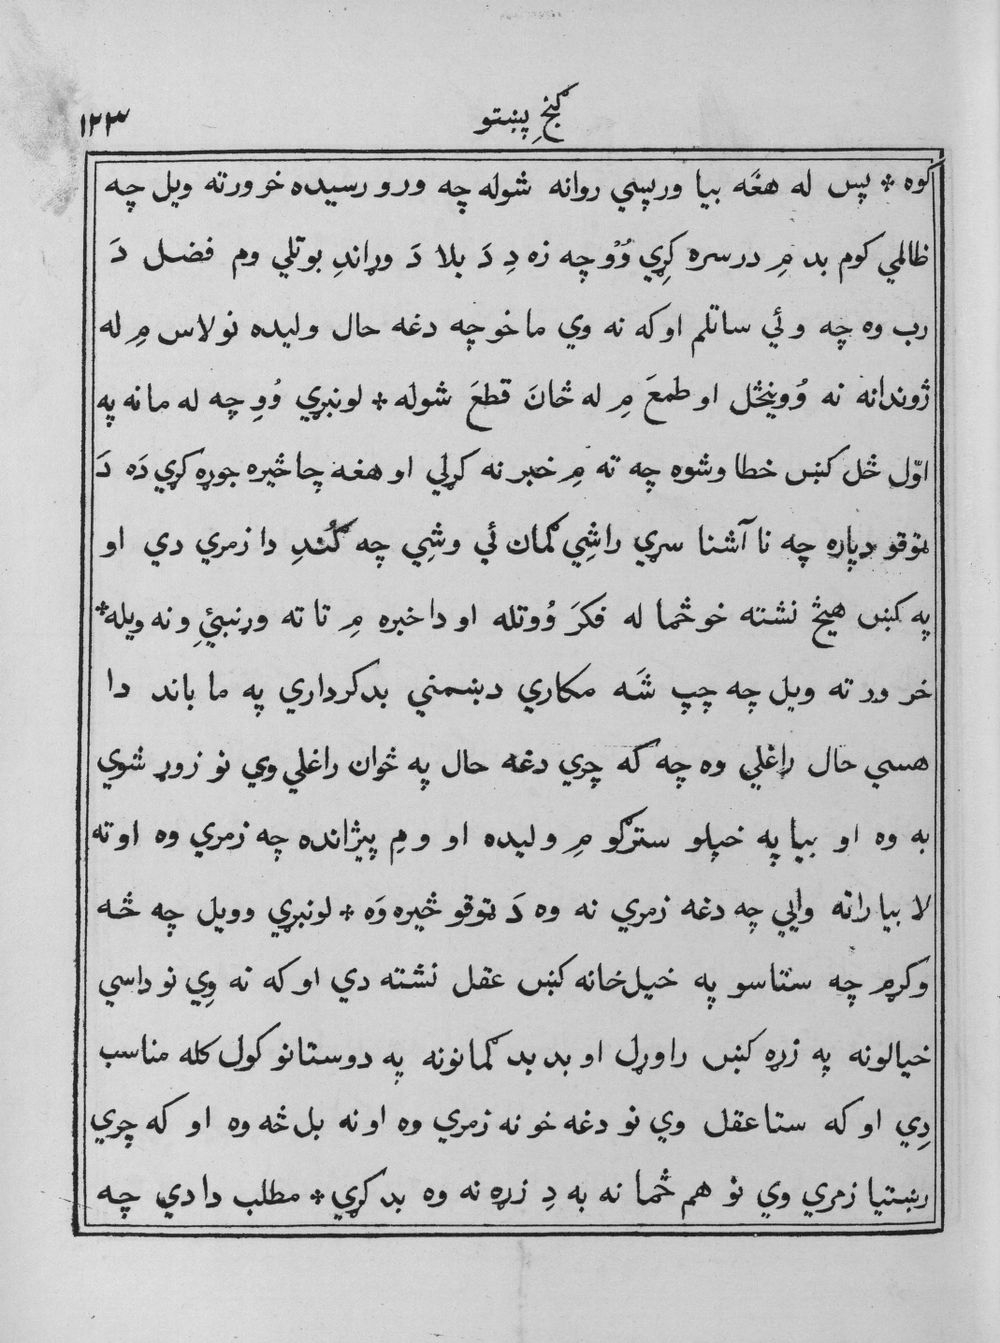 ١٢٣
ګنجِ پښتو
کوه * پس له هغَه بیا ورپسي روانه شوله چه ورو رسیده خر ورته ویل چه
ظالمي کوم بد مِ درسره کړِي وُوْ چه زه دِ دَ بلا دَ وړاندِ بوتلي وم فضل دَ
رب وه چه وئي ساتلم او که نه وي ما خو چه دغه حال ولیده نو لاس مِ له
ژوندانه نه وُوینځل او طمعَ مِ له ځانَ قطعَ شوله * لونبړي وُوِ چه له ما نه په
اوّل ځل کښ خطا وشوه چه ته مِ خبر نه کړلي او هغه چا څیره جوړه کړي دَه دَ
ټوقو دپاره چه نا آشنا سړي راشِي ګمان ئي وشِي چه ګُندِ دا زمري دي او
په کښ هیڅ نشته خو څما له فکرَ وُوتله او دا خبره مِ تا ته ورنبئِ ونه ویله *
خر ور ته ویل چه چپ شَه مکاري دښمني بدکرداري په ما باند دا
هسي حال راغلي وه چه که چري دغه حال په ځوان راغلي وي نو زوړ شوي
به وه او بیا په خپلو سترګو مِ ولیده او ومِ پیژانده چه زمري وه او ته
لا بیا راته وایي چه دغه زمري نه وه دَ ټوقو څیره وَه * لونبړي وویل چه څه
وکړم چه ستاسو په خیل‌خانه کښ عقل نشته دي او که نه وِي نو داسي
خیالونه په زړه کښ راوړل او بد بد ګمانونه په دوستانو کول کله مناسب
دِي او که ستا عقل وي نو دغه خو نه زمري وه او نه بل څه وه او که چري
رښتیا زمري وي نو هم څما نه به دِ زړه نه وه بد کړي * مطلب دا دي چه